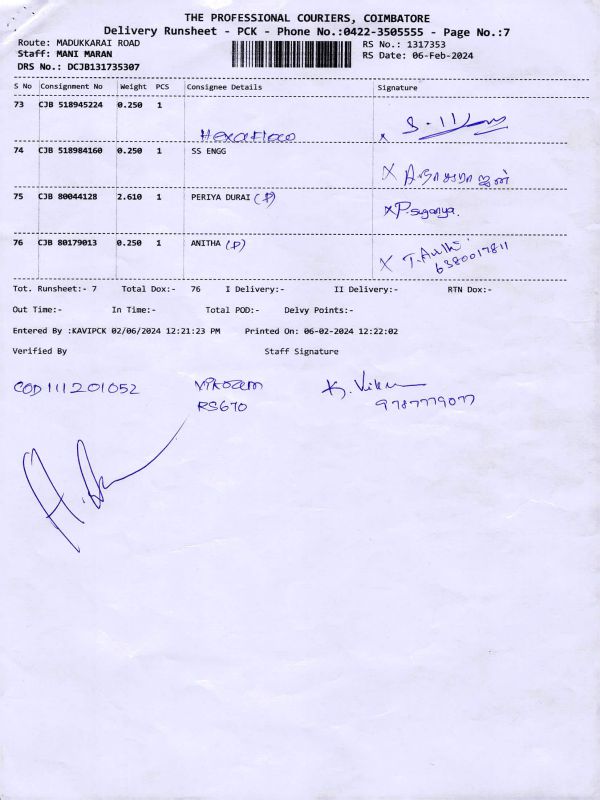 THE PROFESSIONAL COURIERS, COIMBATORE
Delivery Runsheet - PCK - Phone No.:0422-3505555 - Page No.:7
Route: MADUKKARAI ROAD RS No.: 1317353
Staff: MANI MARAN RS Date: 06-Feb-2024
DRS No.: DCJB131735307
S No Consignment No Weight PCS Consignee Details Signature
73 CJB 518945224 0.250 1
x
74 CJB 518984160 0.250 1 SS ENGG
x
75 CJB 80044128 2.610 1 PERIYA DURAI (P) x P. suganya.
76 CJB 80179013 0.250 1 ANITHA (P) x
6380017811
Tot. Runsheet:- 7 Total Dox:- 76 I Delivery:- II Delivery:- RTN Dox:-
Out Time:- In Time:- Total POD:- Delvy Points:-
Entered By :KAVIPCK 02/06/2024 12:21:23 PM Printed On: 06-02-2024 12:22:02
Verified By Staff Signature
COD 111201052
RS670 9787779077